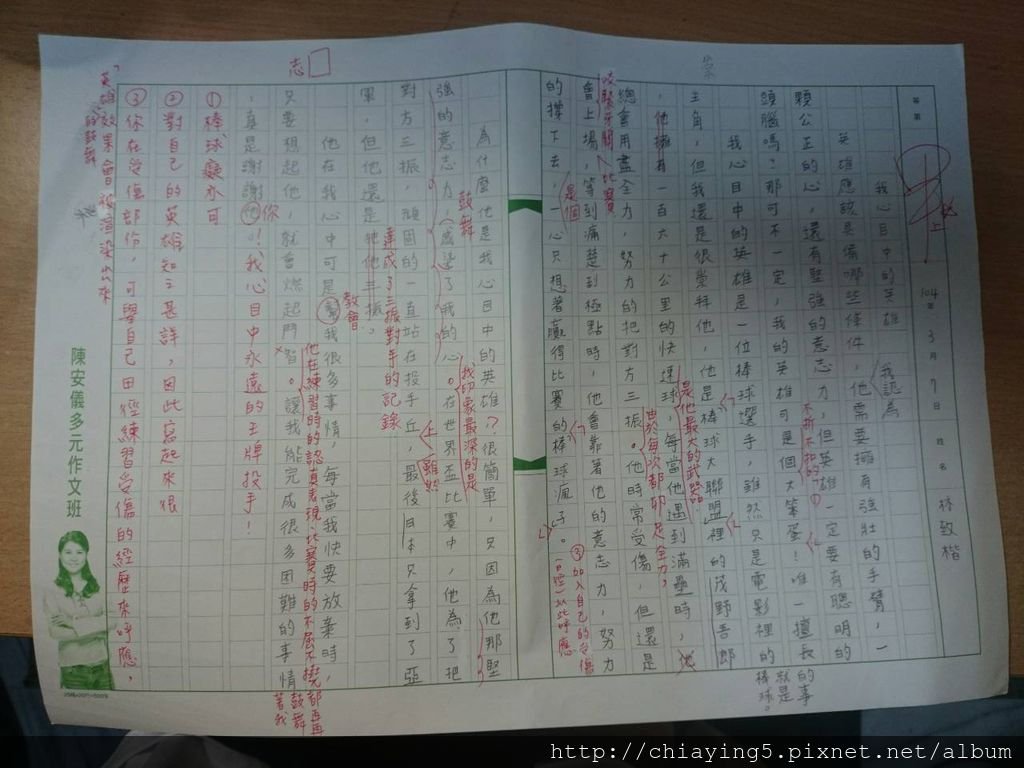 我心目中的英雄
英雄應該具備哪些條件，他需要擁有強壯的手臂，一
顆公正的心，還有堅強的意志力，但英雄一定要有聰明的
頭腦嗎？那可不一定，我的英雄可是個大笨蛋！唯一擅長的事就是棒球。
我心目中的英雄是一位棒球選手，雖然只是電影裡的
主角，但我還是很崇拜他，他是棒球大聯盟裡的茂野吾郎
，他擁有一百六十公里的快速球，每當他遇到滿壘時，他
總會用盡全力，努力的把對方三振。他時常受傷，但還是
會上場，等到痛楚到極點時，他會靠著他的意志力，努力
的撐下去，一心只想著贏得比賽的棒球瘋子。
為什麼他是我心目中的英雄？很簡單，只因為他那堅
強的意志力，感染了我的心。在世界盃比賽中，他為了把
對方三振，頑固的一直站在投手丘，最後日本只拿到了亞
軍，但他還是把他三振。
他在我心中可是幫我很多事情，每當我快要放棄時，
只要想起他，就會燃起鬥智。讓我能完成很多困難的事情
，真是謝謝他！我心目中永遠的王牌投手！
等第
上
104年3月7日
姓名
林致楷
崇
志
我認為
不折不扣的
是他最大的武器
由於每次都卯足全力，
咬緊牙關
比賽
是個
③加入自己的受傷
以此呼應
鼓舞
我印象最深的是
雖然
達成了三振對手的記錄
教會
他在練習時的認真表現、比賽時的不屈不撓都再再鼓舞著我
你
①棒球癡亦可
②對自己的英雄知之甚詳，因此寫起來很
③你在受傷部份，可舉自己田徑練習受傷的經歷來呼應，
英雄的鼓舞效果會被渲染出來
陳安儀多元作文班
http://chiaying5.pixnet.net/album